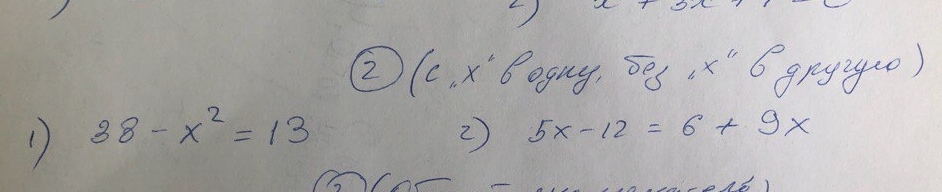 ② (с „х" в одну, без „х" в другую)
1) 38 - x² = 13 2) 5x - 12 = 6 + 9x